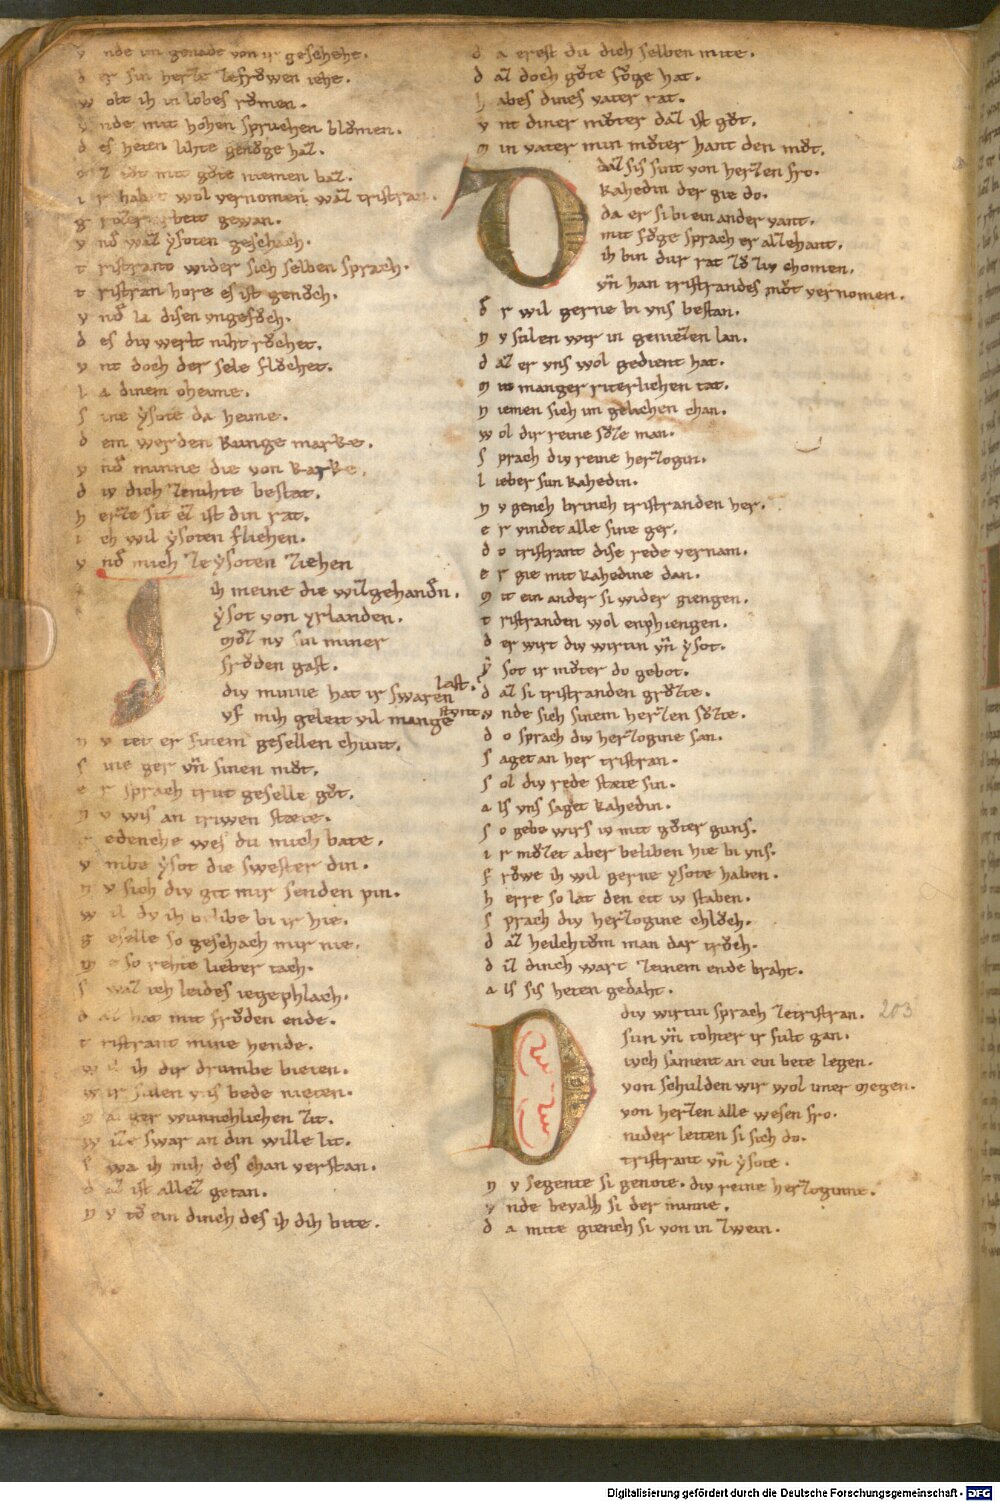 v nde im genade von ir geschehe.
d er sin herze ze frŏwen iehe.
w olt ih in lobes rŏmen.
v nde mit hohen spruchen blŏmen.
d es heten lihte genŏge haz.
mit gŏte niemen baz.
i r habet wol vernomen. waz tristran.
gewan.
v nd waz ẏsoten geschach.
t ristrant wider sich selben sprach.
t ristran hore es ist genŏch.
v nd la disen vngefŏch.
d es div werlt niht rŏchet.
v nt doch der sele flŏchet.
l a dinem oheime.
s ine ẏsote da heime.
d em werden kunge marke.
v nd minne die von karke.
d iv dich zerihte bestat.
h erze sit ez ist din rat.
i ch wil ẏsoten fliehen.
v nd mich ze ẏsoten ziehen
I ih meine die wizgehandn.
ẏsot von yrlanden.
mŏz nv sin miner
frŏden gast.
div minne hat ir swaren last.
vf mih geleit vil mange stunt.
n v tet er sinem gesellen chunt.
s ine ger vn̄ sinen mŏt.
e r sprach trut geselle gŏt.
n v wis an triwen stæte.
g edenche wes du mich bate.
v mbe ẏsot die swester din.
n v sich div git mir senden pin.
w il dv ih belibe bi ir hie.
g eselle so geschach mir nie.
so rehte lieber tach.
s waz ich leides iegephlach.
d az hat mit frŏden ende.
t ristrant mine hende.
w il ih dir drumbe bieten.
w ir sulen vns bede nieten.
m anger wunnchlichen zit.
w ilt swar an din wille lit.
s wa ih mih des chan verstan.
d az ist allez getan.
n v tŏ ein dinch des ih dih bite.
d a erest du dich selben mite.
d az doch gŏte fŏge hat.
h abes dines vater rat.
v nt diner mŏter daz ist gŏt.
m in vater min mŏter hant den mŏt.
D daz sis sint von herzen fro.
kahedin der gie do.
da er si bi ein ander vant.
mit fŏge sprach er allehant.
ih bin dur rat zŏ iv chomen.
vn̄ han tristrandes mŏt vernomen.
d r wil gerne bi vns bestan.
n v sulen wir in geniezen lan.
d az er vns wol gedient hat.
m it manger riterlichen tat.
n iemen sich im gelichen chan.
w ol dir reine sŏze man.
s prach div reine herzogin.
l ieber sun kahedin.
n v gench brinch tristranden her.
e r vindet alle sine ger.
d o tristrant dise rede vernam.
e r gie mit kahedine dan.
m it ein ander si wider giengen.
t ristranden wol enphiengen.
d er wirt div wirtin vn̄ ẏsot.
ẏ sot ir mŏter do gebot.
d az si tristranden grŏzte.
v nde sich sinem herzen sŏzte.
d o sprach div herzogine san.
s aget an her tristran.
s ol div rede stæte sin.
a ls vns saget kahedin.
s o gebe wirs iv mit gŏter guns.
i r mŏzet aber beliben hie bi vns.
f rŏwe ih wil gerne ysote haben.
h erre so lat den eit iv staben.
s prach div herzogine chlŏch.
d az heilchtŏm man dar trŏch.
d iz dinch wart zeinem ende braht.
a ls sis heten gedaht.
D div wirtin sprach zetristran. 203
sun vn̄ tohter ir sult gan.
iwch sament an ein bete legen.
von schulden wir wol imer megen.
von herzen alle wesen fro.
nider leiten si sich do.
tristrant vn̄ ẏsote.
n v segente si genote. div reine herzoginne.
v nde bevalh si der minne.
d a mite giench si von in zwein.
Digitalisierung gefördert durch die Deutsche Forschungsgemeinschaft - DFG